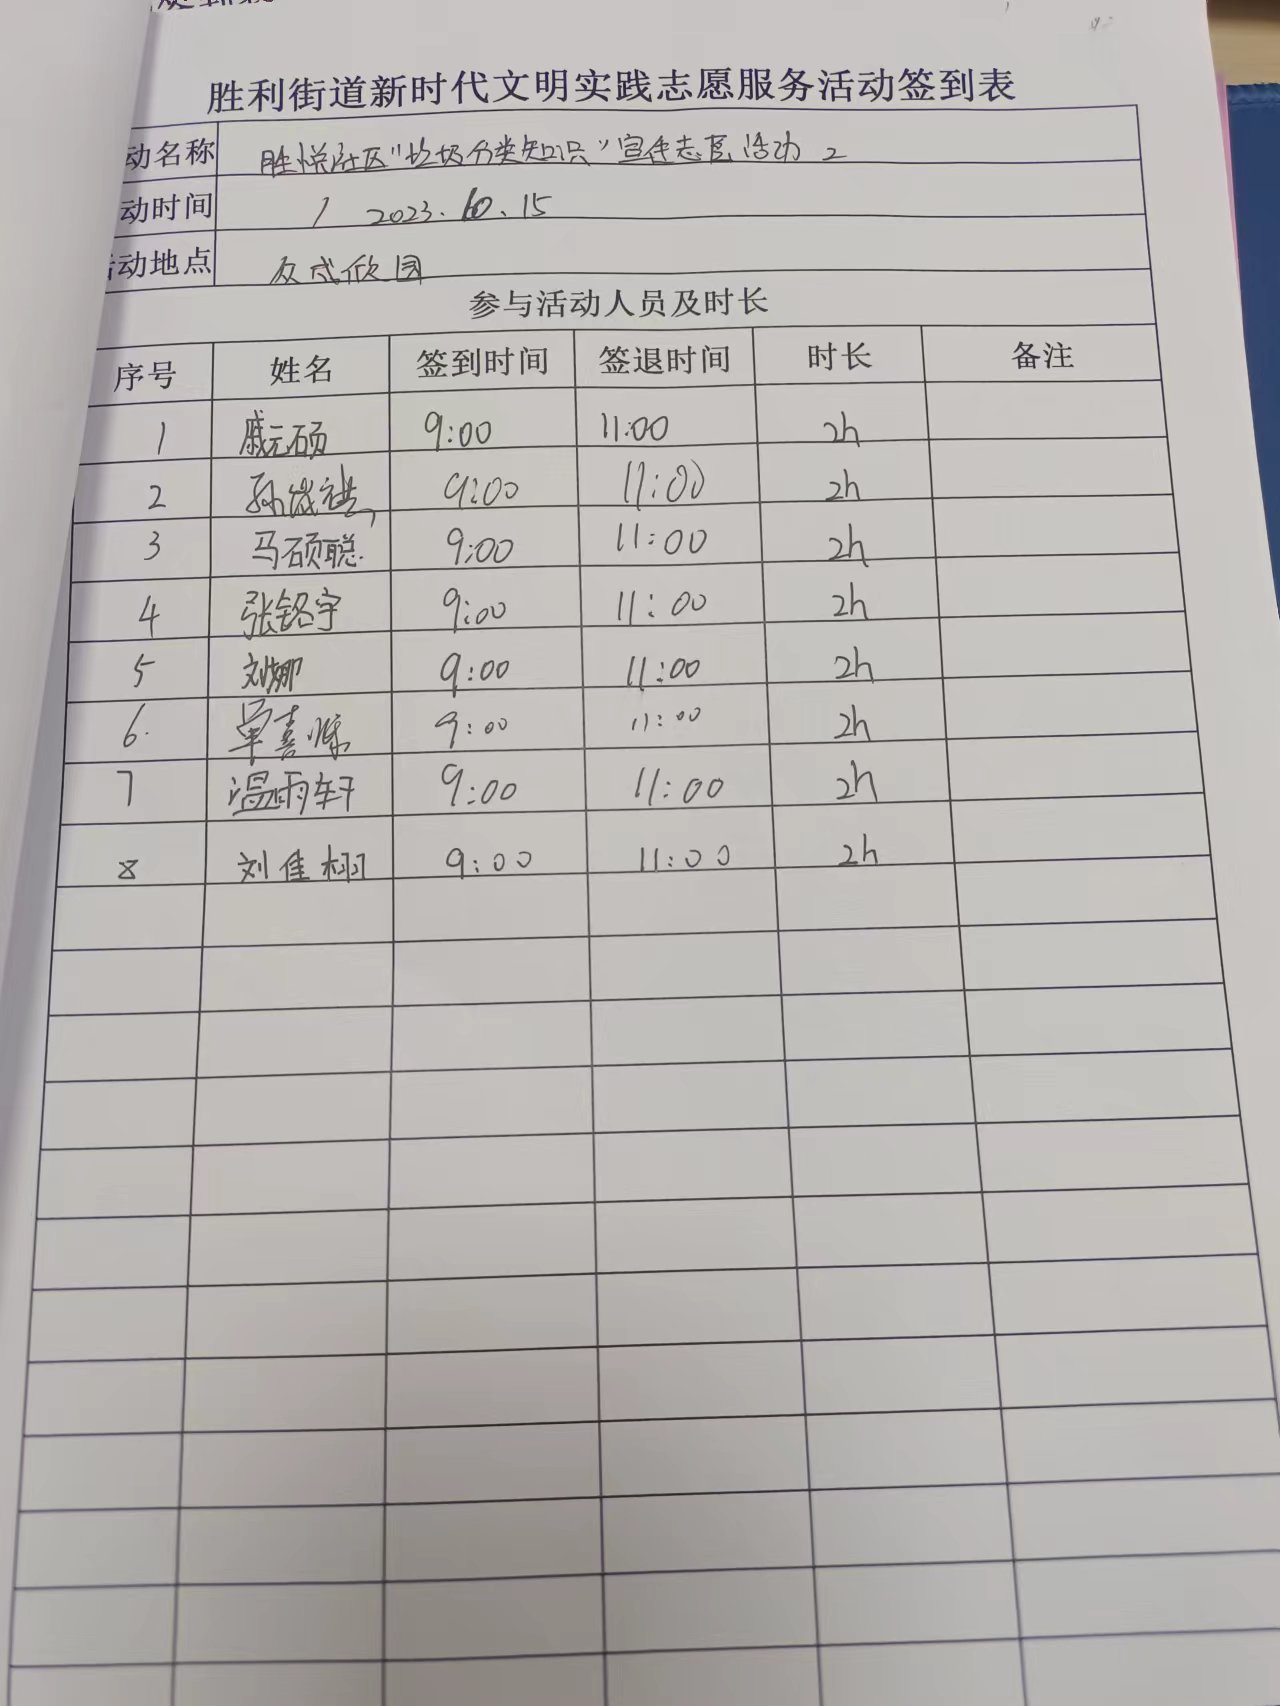 胜利街道新时代文明实践志愿服务活动签到表
动名称 胜悦社区"垃圾分类知识"宣传志愿活动 2
动时间 2023.10.15
活动地点 众成欣园
参与活动人员及时长
序号 姓名 签到时间 签退时间 时长 备注
1 戚元硕 9:00 11:00 2h
2 孙 9:00 11:00 2h
3 马硕聪 9:00 11:00 2h
4 张铭宇 9:00 11:00 2h
5 刘娜 9:00 11:00 2h
6. 单喜 9:00 11:00 2h
7 温雨轩 9:00 11:00 2h
8 刘佳栩 9:00 11:00 2h